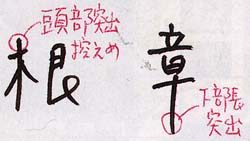 頭部突出
控えめ
根
章
下部長
突出